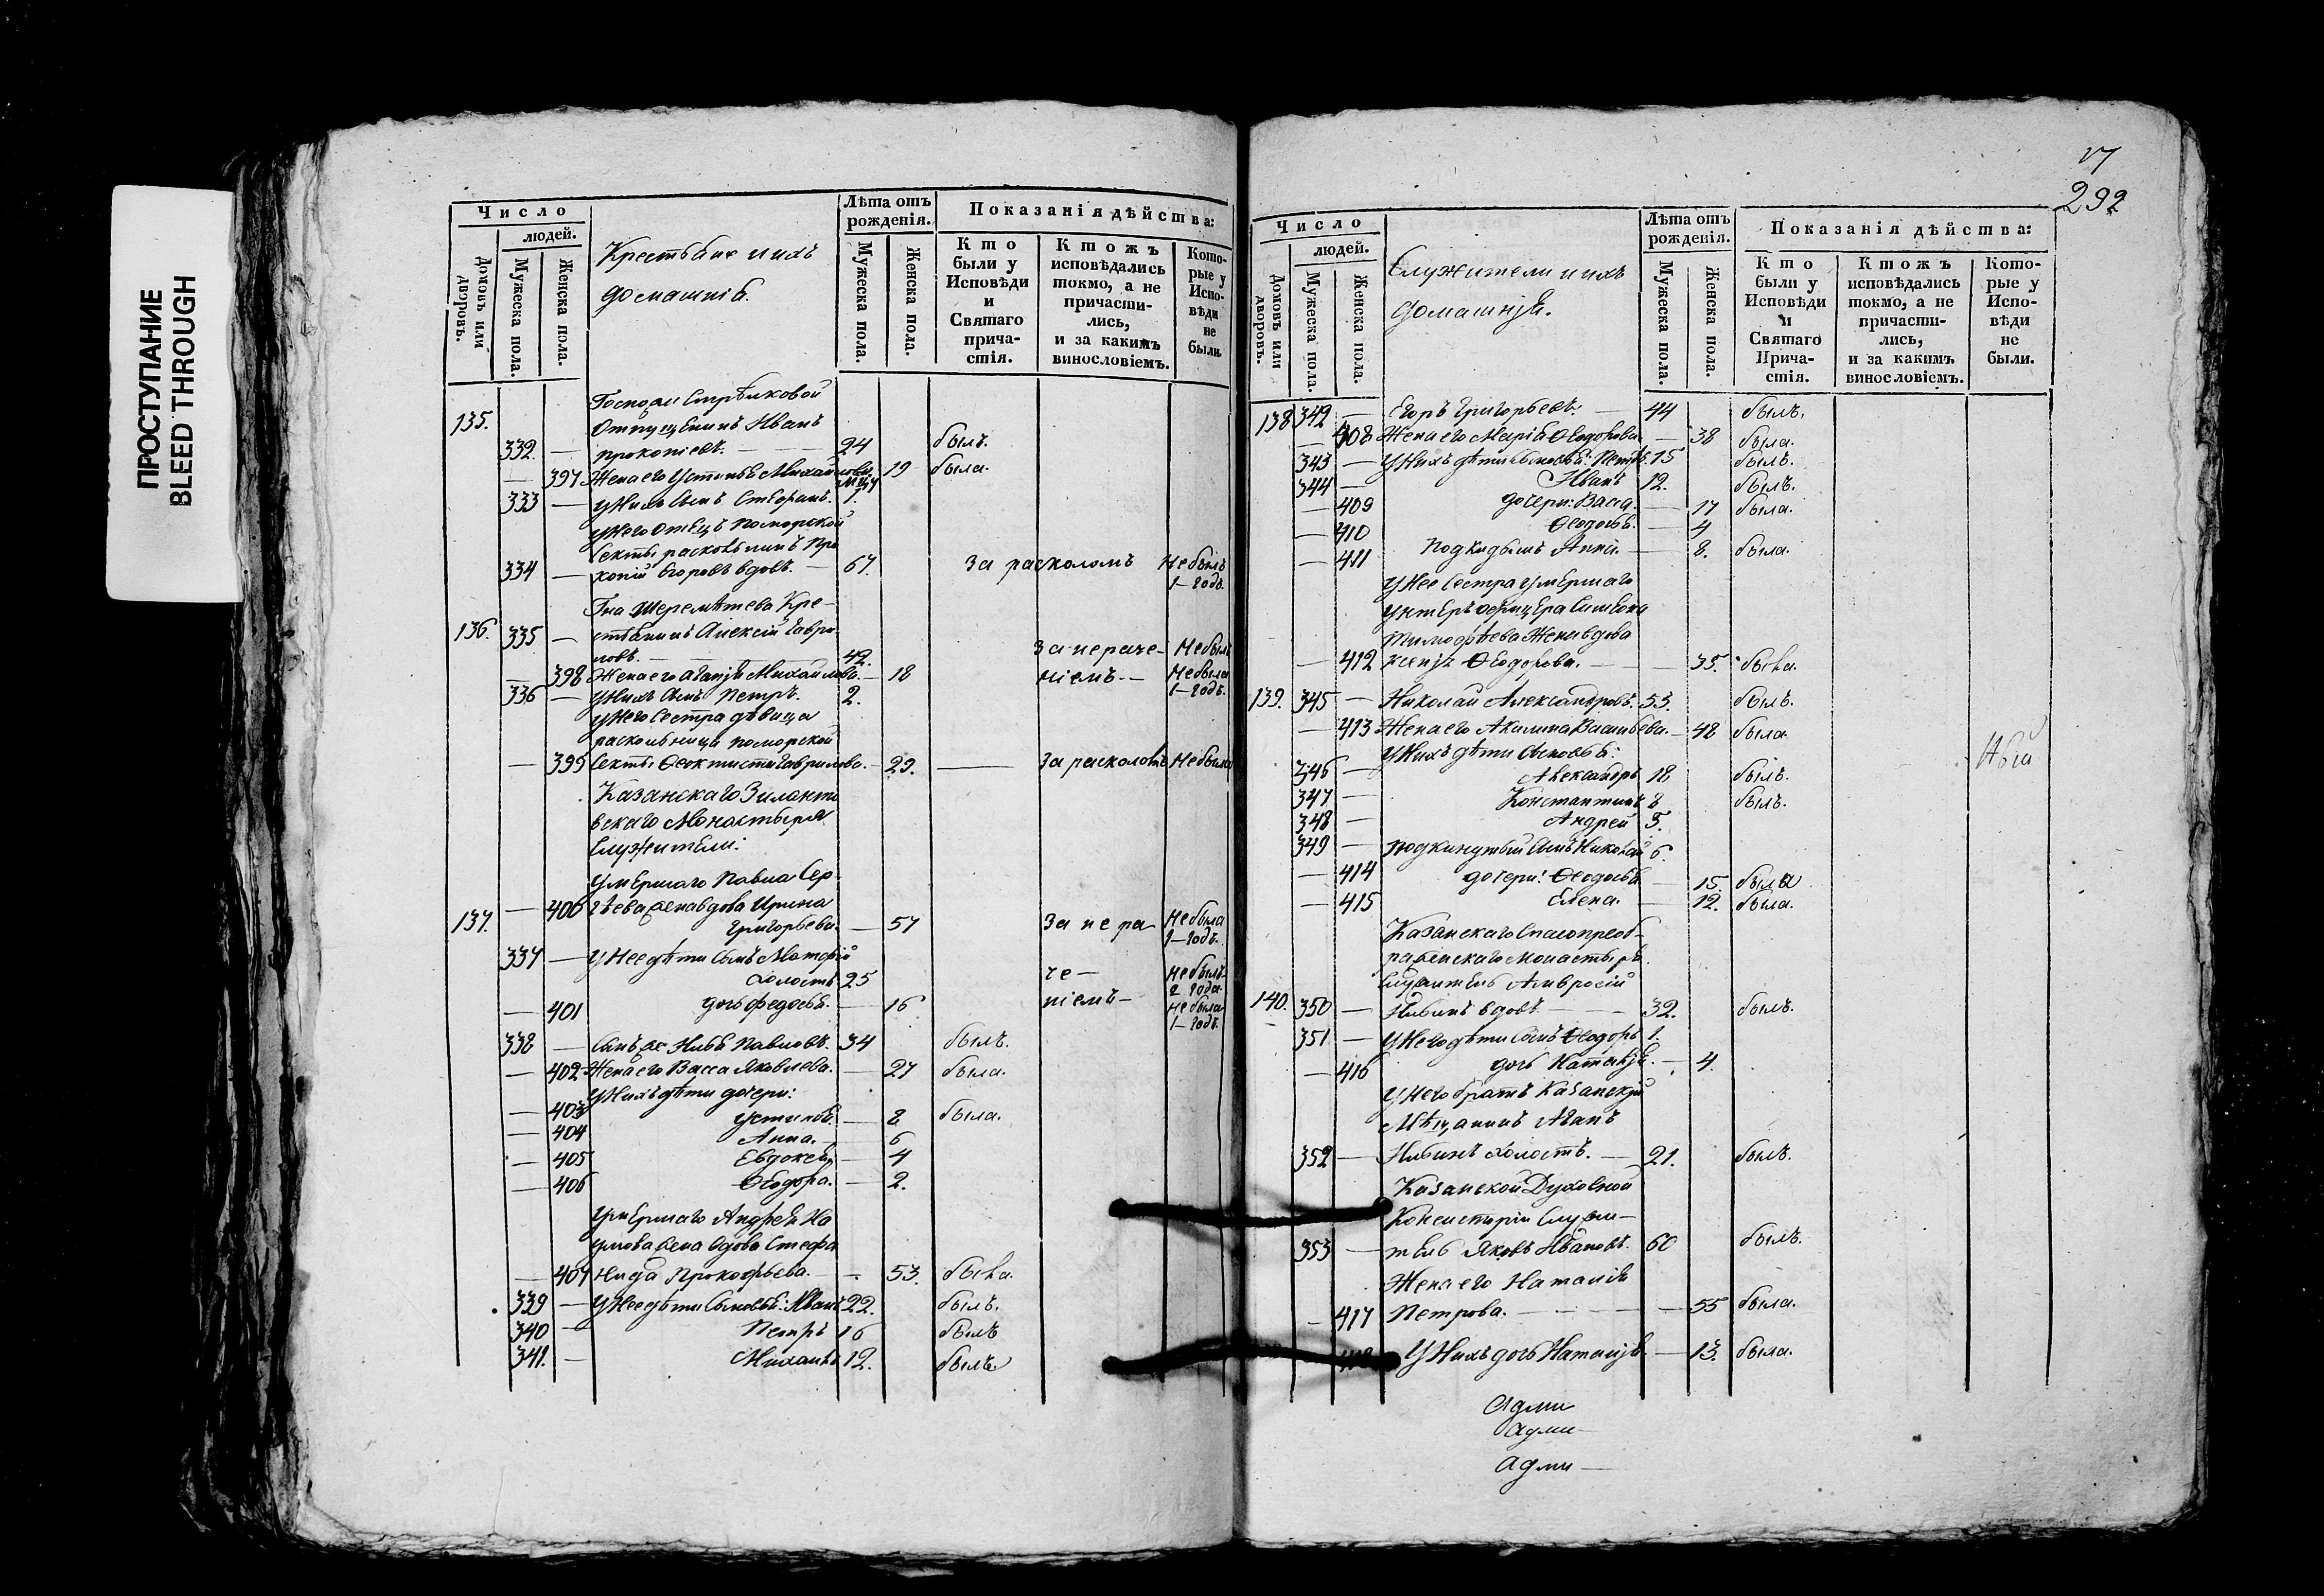 ПРОСТУПАНИЕ
BLEED THROUGH
Число
людей.
Домовъ или дворовъ.
Мужеска пола.
Женска пола.
Крестьяне и ихъ
домашнія.
Лѣта отъ рожденія.
Мужеска пола.
Женска пола.
Показанія дѣйства:
Кто были у Исповѣди и Святаго причастія.
Ктожъ исповѣдались токмо, а не причастились, и за какимъ винословіемъ.
Которые у Исповѣди не были.
135. Госпожи
отпущенникъ Иванъ
332. — Прокопіевъ. — 24 былъ.
— 397 Жена его Устинья Михайлова 19 была.
333 — У нихъ сынъ Стефанъ. 1.
у него отецъ поморской
секты раскольникъ Про
334 — копій Егоровъ вдовъ. — 67. За расколомъ Не былъ
1 — годъ.
Гна Шереметева Кре-
136. 335 — стьянинъ Алексій Гаври-
ловъ. — 42. За нераче- Не былъ
— 398 Жена его Агапія Михайлова. — 18 ніемъ. — Не была
1 — годъ.
336 — У нихъ сынъ Петръ. 2.
у него сестра дѣвица
раскольница поморской
— 399 секты Ѳеоктиста Гаврилова. — 29. — За расколомъ Не была
Казанскаго Зиланто
вскаго Монастыря
служители:
Умершаго Павла Сер-
— 400 гѣева жена вдова Ирина
137. Григорьева. — 57 За нера Не была
1 — годъ.
337 — У нее дѣти сынъ Матѳій
холостъ 25 че — не былъ
2 года.
— 401 дочь Федосья. — 16 ніемъ — не была
1 — годъ.
338 — Сынъ же Илья Павловъ. 34 былъ.
— 402 Жена его Васса Яковлева. — 27 была.
У нихъ дѣти дочери:
— 403 Устинья. — 8 была.
— 404 Анна. — 6
— 405 Евдокея — 4
— 406 Ѳеодора. — 2.
Умершаго Андрея На
умова жена вдова Стефа
— 407 нида Прокофьева. — 53. была.
339 — У нее дѣти сыновья: Иванъ 22. былъ.
340 — Петръ 16 былъ
341. — Михаилъ 12. былъ
17
292
Число
людей.
Домовъ или дворовъ.
Мужеска пола.
Женска пола.
Служители и ихъ
домашнія.
Лѣта отъ рожденія.
Мужеска пола.
Женска пола.
Показанія дѣйства:
Кто были у Исповѣди и Святаго Причастія.
Ктожъ исповѣдались токмо, а не причастились, и за какимъ винословіемъ.
Которые у Исповѣди не были.
138 342 — Егоръ Григорьевъ. 44 былъ.
— 408 Жена его Марія Ѳеодорова — 38 была.
343 — У нихъ дѣти сыновья: Петръ 15 былъ.
344 — Иванъ 12. былъ.
— 409 дочери: Васса. — 17 была.
— 410 Ѳеодосья. — 4
— 411 подкидышъ Анна. — 8. была.
У нее сестра умершаго
унтеръ офицера Симеона
Тимофѣева жена вдова
— 412 Ксенія Ѳеодорова. — 35. была.
139. 345 — Николай Александровъ. 53. былъ.
— 413 Жена его Акилина Васильева. — 48 была
У нихъ дѣти сыновья:
346 — Александръ 18 былъ.
347 — Константинъ 8 былъ.
348 — Андрей 5.
349 — подкинутый сынъ Николай 6.
— 414 дочери: Ѳеодосья — 15. была
— 415 Елена. — 12. была.
Казанскаго Спасопреоб-
раженскаго монастыря
служитель Амвросій
140. 350 — Ильинъ вдовъ. — 32. былъ.
351 — У него дѣти сынъ Ѳеодоръ 1.
— 416 дочь Наталія. — 4.
У него братъ Казанскій
мѣщанинъ Агапъ
352 — Ильинъ холостъ. — 21. былъ.
Казанской Духовной
Консисторіи служи-
353 — тель Яковъ Ивановъ. 60 былъ.
Жена его Наталія
— 417 Петрова. — 55 была.
У нихъ дочь Наталія. — 13. была.
Адми
Адми —
Адми —